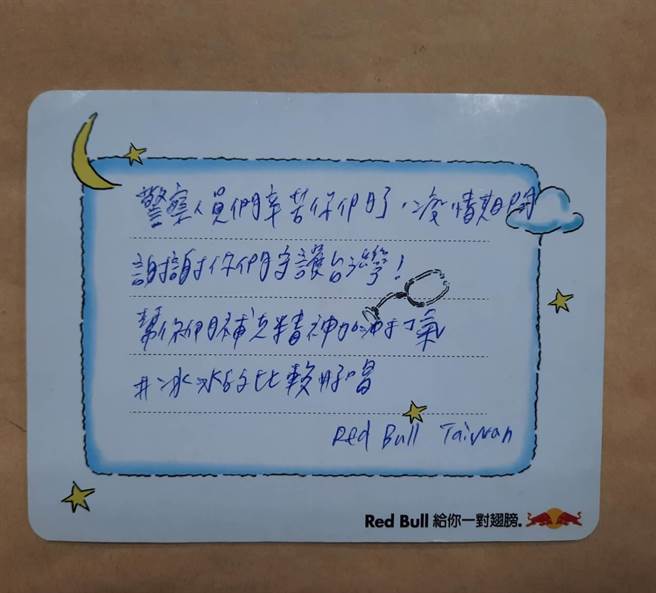 警察人員們辛苦你們了,疫情期間
謝謝你們守護台灣!
幫你們補充精神加油打氣
#冰冰的比較好喝
Red Bull Taiwan
Red Bull 給你一對翅膀.